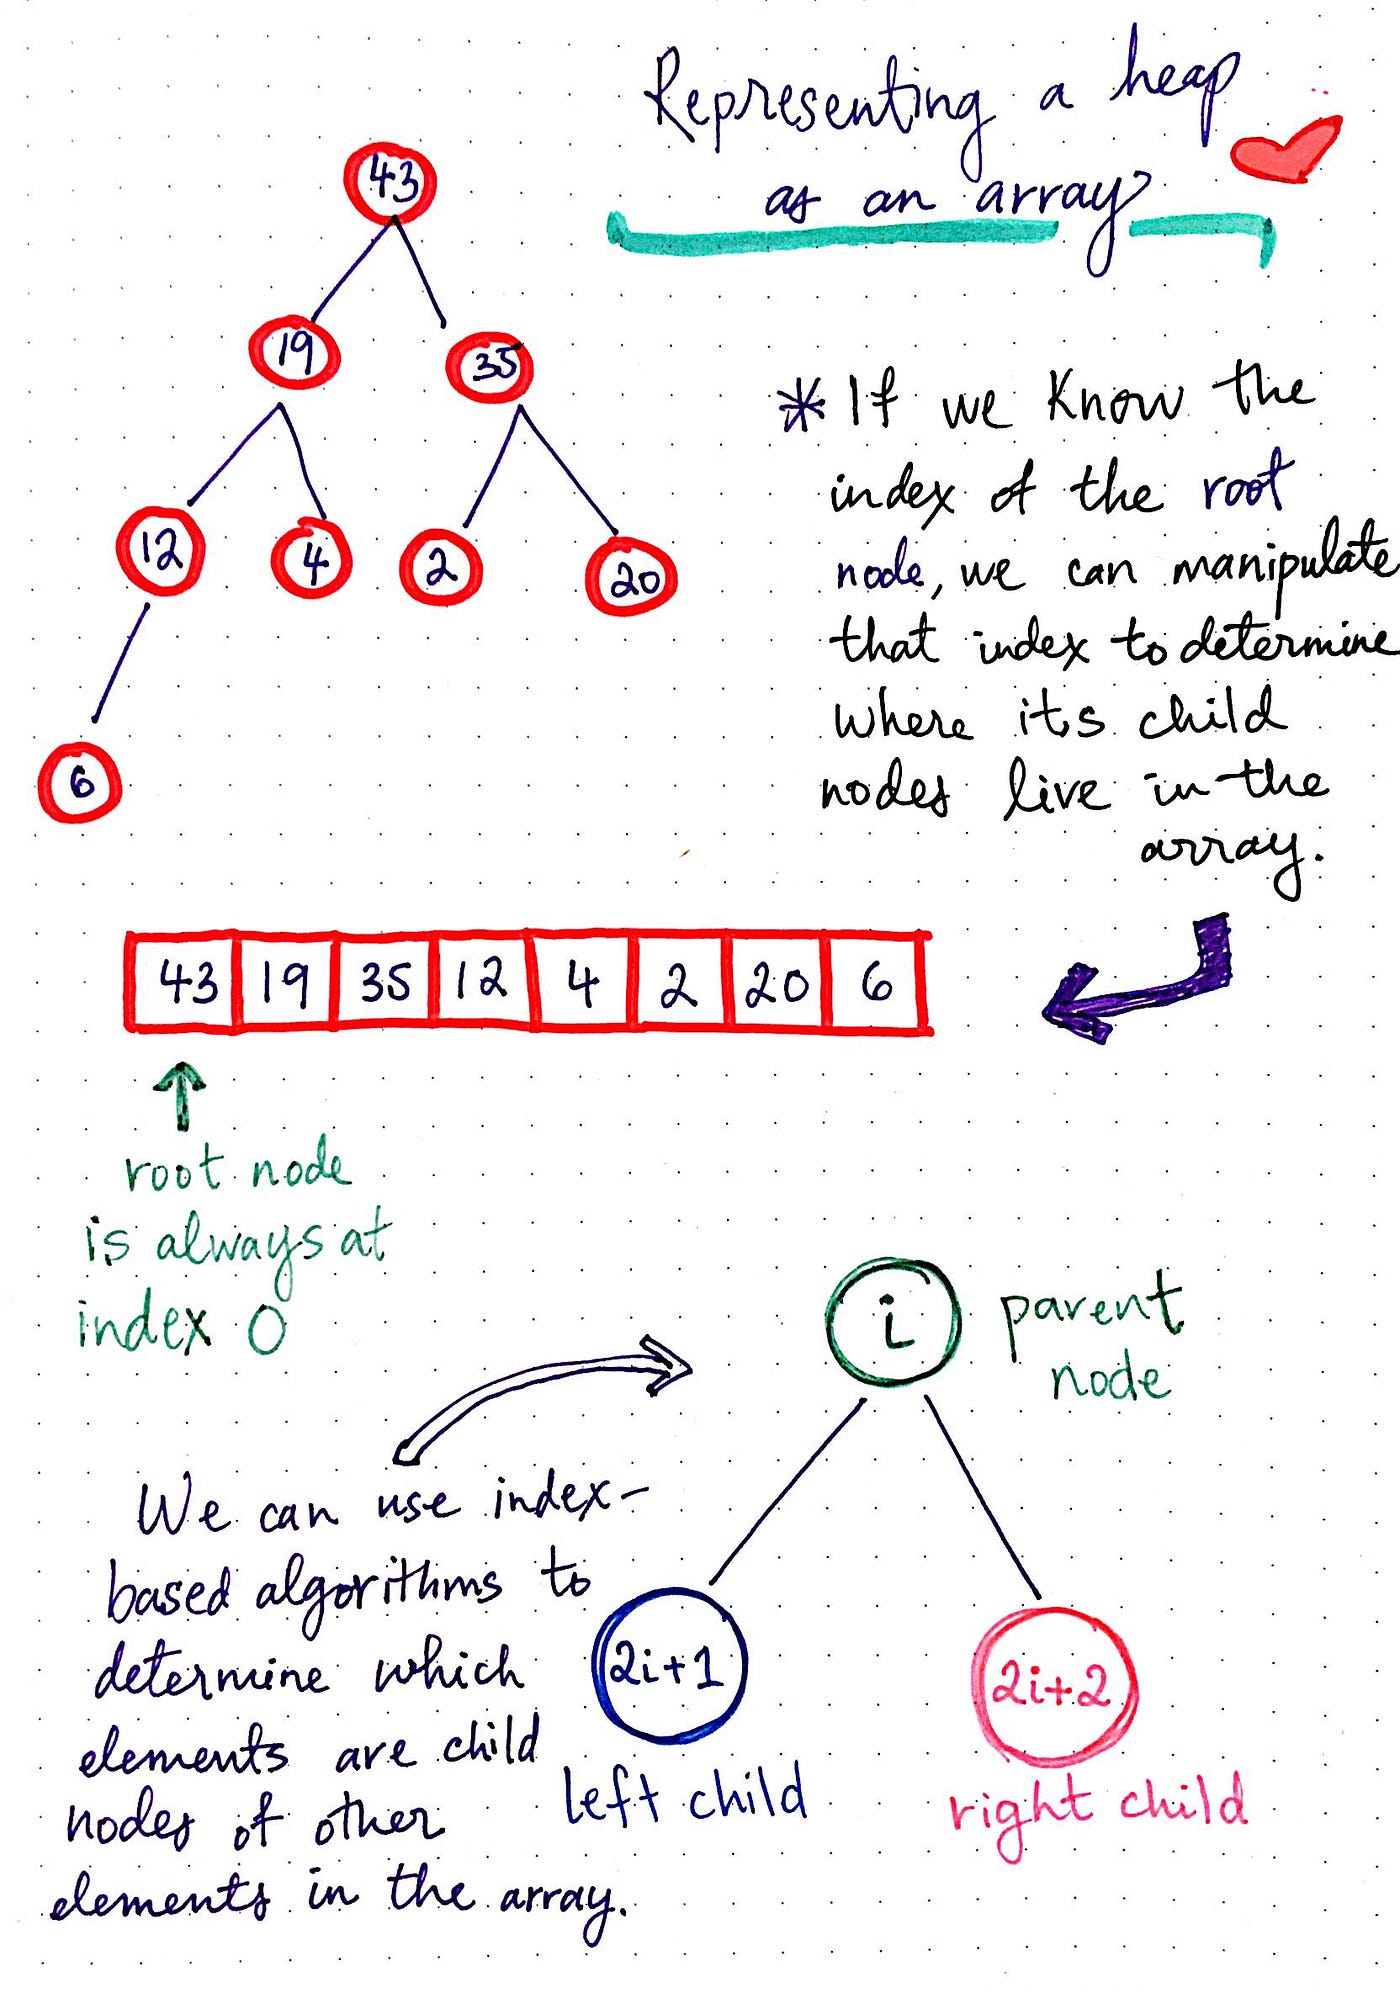 Representing a heap
as an array
43
19
35
12
4
2
20
6
* If we know the
index of the root
node, we can manipulate
that index to determine
where its child
nodes live in the
array.
43 19 35 12 4 2 20 6
root node
is always at
index 0
i
parent
node
We can use index-
based algorithms to
determine which
elements are child
nodes of other
elements in the array.
2i+1
2i+2
left child
right child